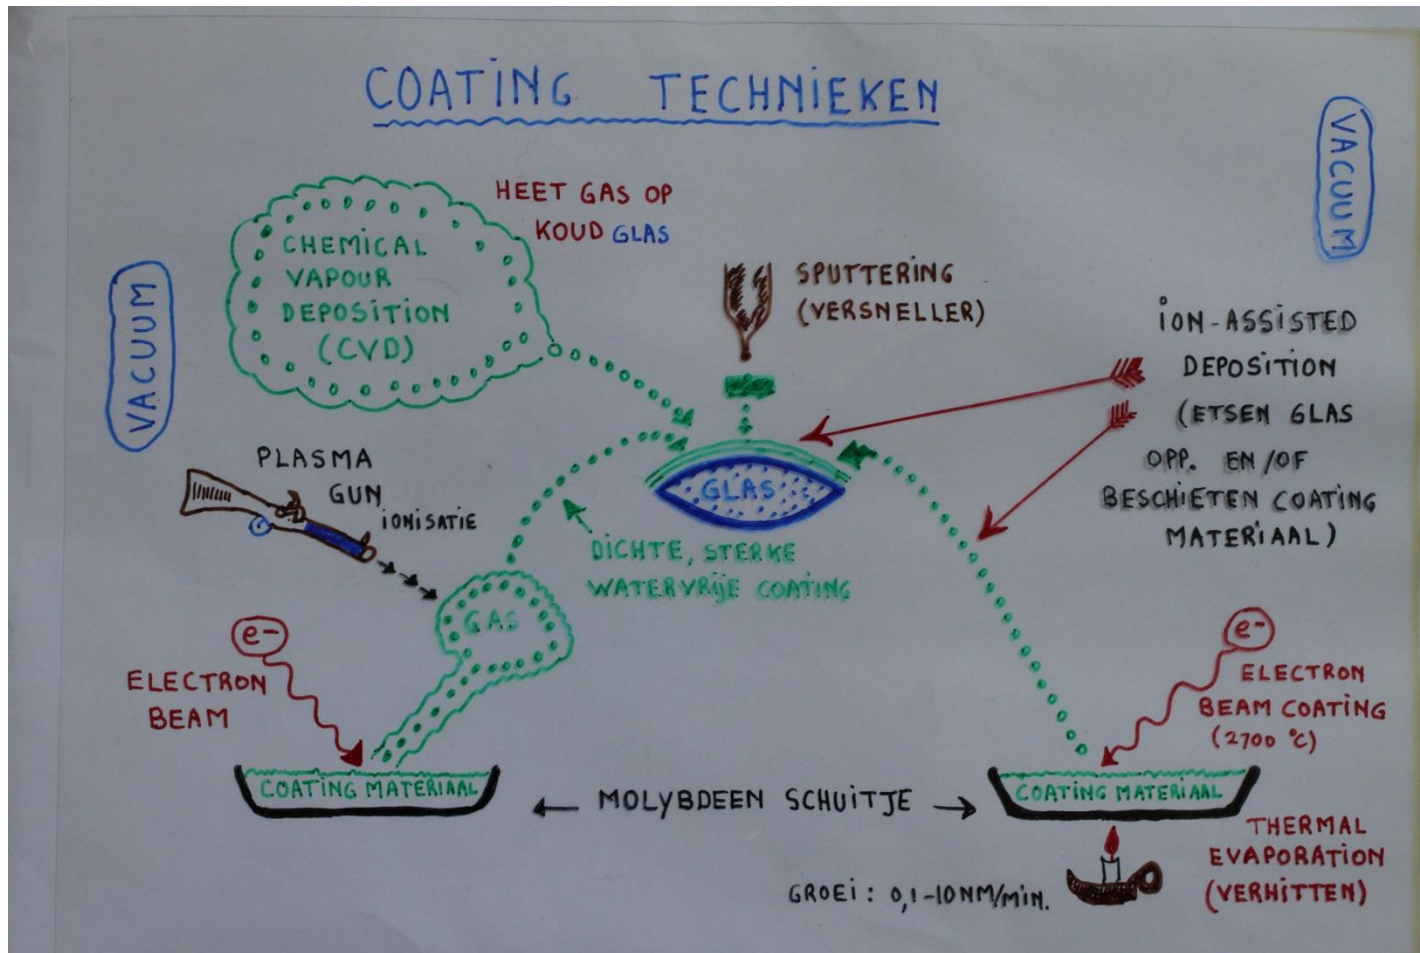 COATING TECHNIEKEN
VACUUM
HEET GAS OP
KOUD GLAS
CHEMICAL
VAPOUR
DEPOSITION
(CVD)
VACUUM
SPUTTERING
(VERSNELLER)
ION-ASSISTED
DEPOSITION
(ETSEN GLAS
OPP. EN/OF
BESCHIETEN COATING
MATERIAAL)
PLASMA
GUN
IONISATIE
GLAS
DICHTE, STERKE
WATERVRIJE COATING
GAS
e-
ELECTRON
BEAM
COATING MATERIAAL
e-
ELECTRON
BEAM COATING
(2700 °C)
COATING MATERIAAL
MOLYBDEEN SCHUITJE
THERMAL
EVAPORATION
(VERHITTEN)
GROEI: 0,1-10NM/MIN.